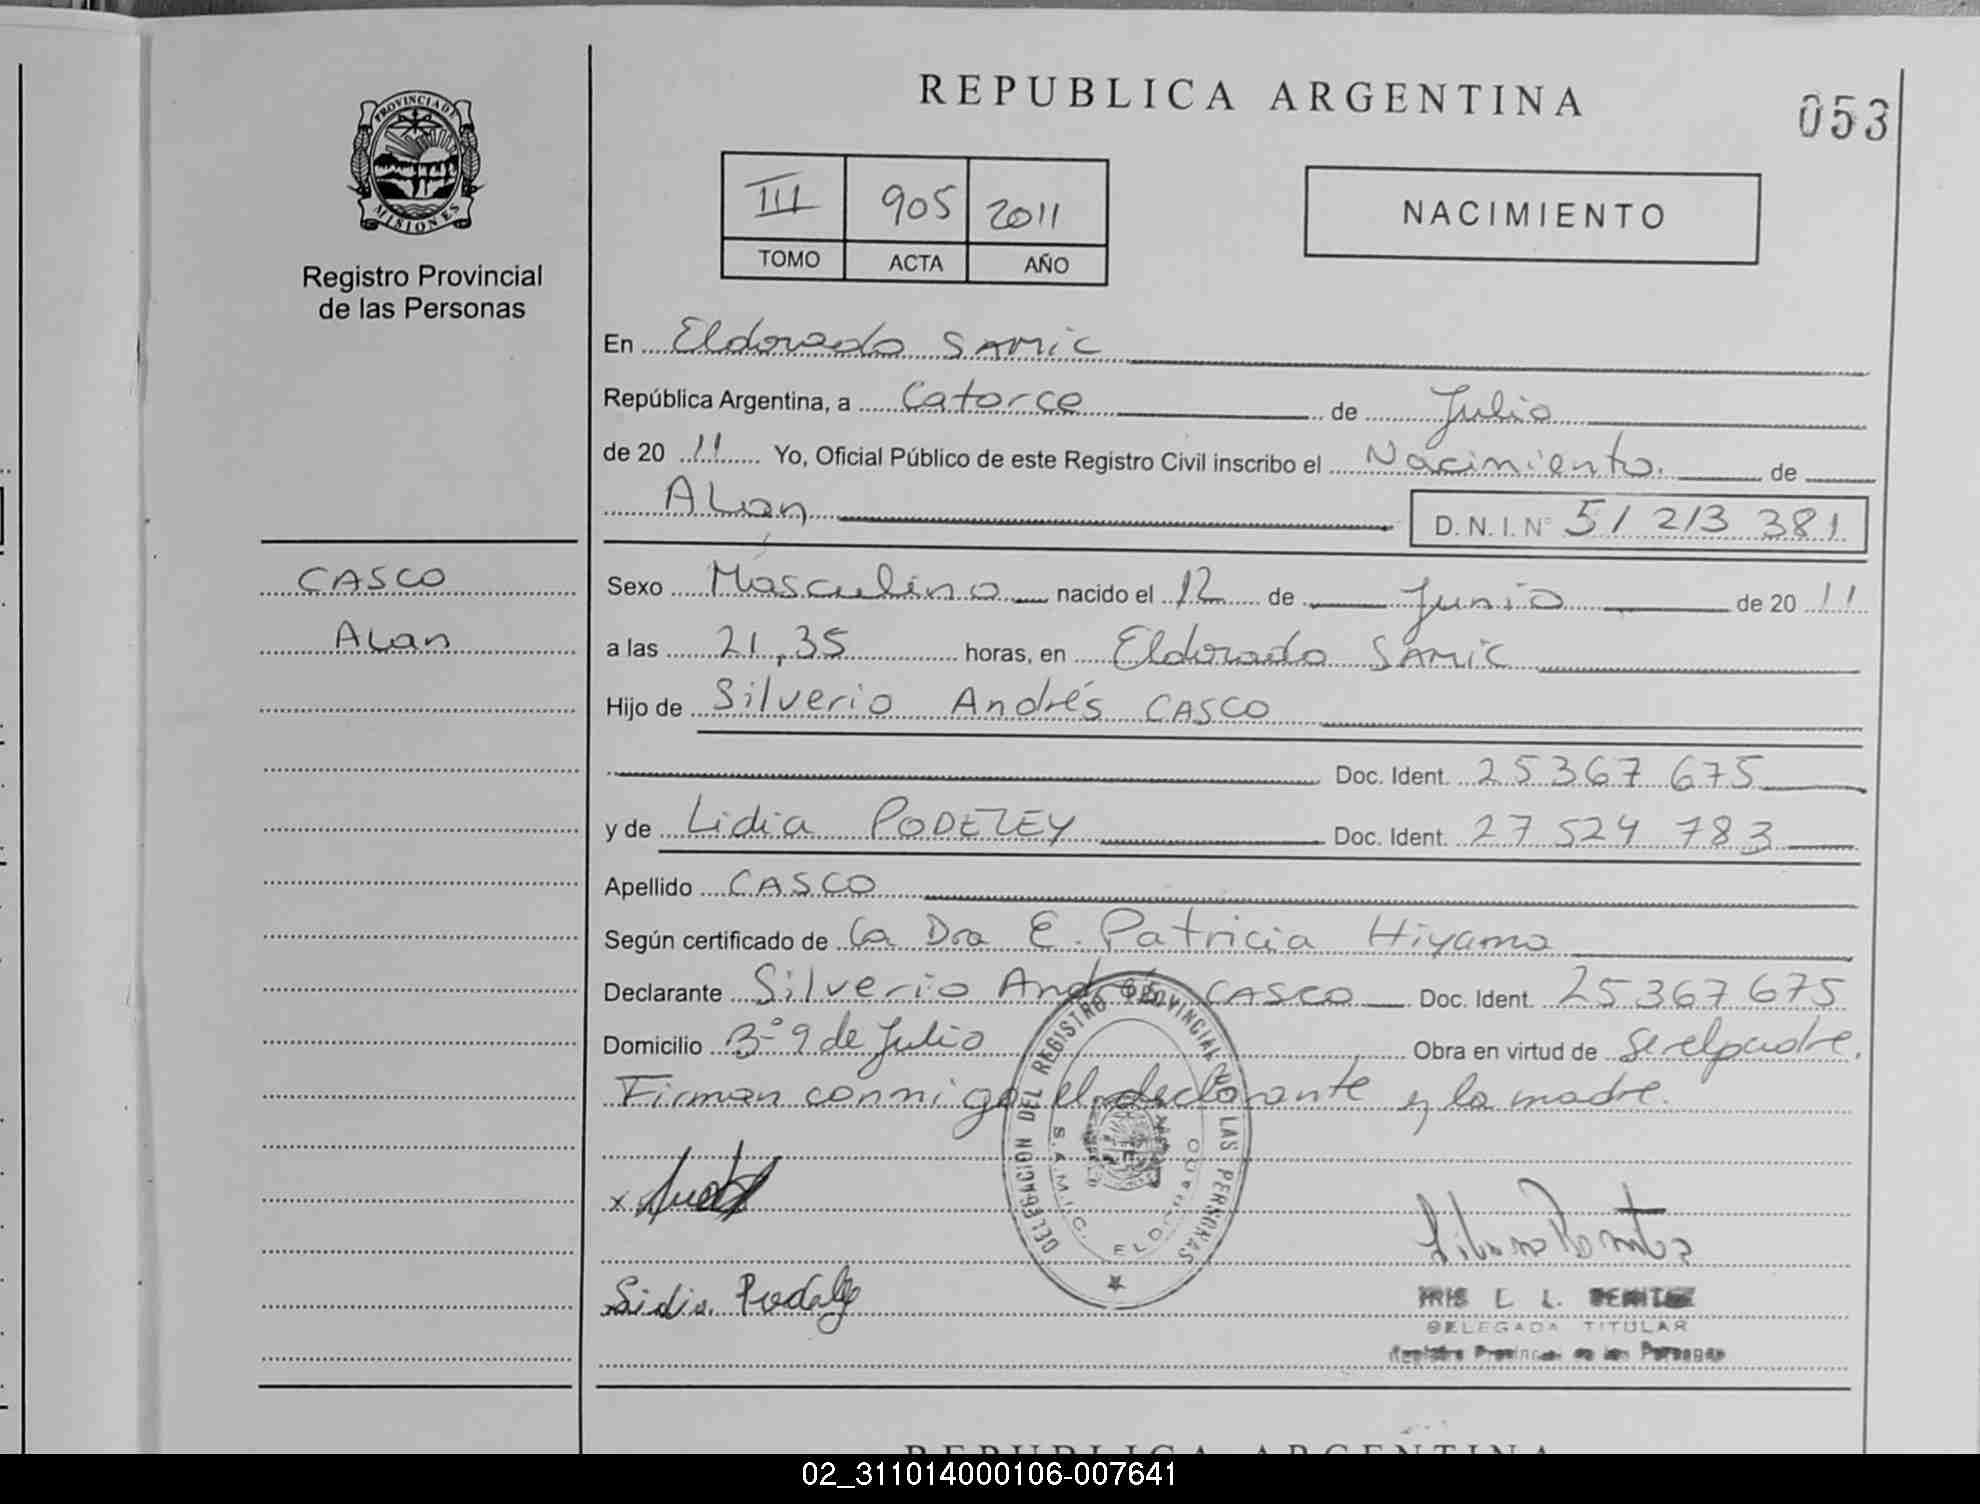 REPUBLICA ARGENTINA
053
PROVINCIA DE MISIONES
Registro Provincial
de las Personas
III 905 2011
TOMO ACTA AÑO
NACIMIENTO
En Eldorado SAMIC
República Argentina, a Catorce de Julio
de 20 11 Yo, Oficial Público de este Registro Civil inscribo el Nacimiento de
ALan D.N.I. Nº 51 213 381
CASCO
ALan
Sexo Masculino nacido el 12 de Junio de 20 11
a las 21,35 horas, en Eldorado SAMIC
Hijo de Silverio Andrés CASCO
Doc. Ident. 25 367 675
y de Lidia PODEZEY Doc. Ident. 27 524 783
Apellido CASCO
Según certificado de La Dra E. Patricia Hiyama
Declarante Silverio Andrés CASCO Doc. Ident. 25 367 675
Domicilio Bº 9 de Julio Obra en virtud de ser el padre.
Firman conmigo el declarante y la madre.
DELEGACION DEL REGISTRO PROVINCIAL DE LAS PERSONAS
S.A.M.I.C. ELDORADO
IRIS L. L. BENITEZ
DELEGADA TITULAR
Registro Provincial de las Personas
REPUBLICA ARGENTINA
02_311014000106-007641